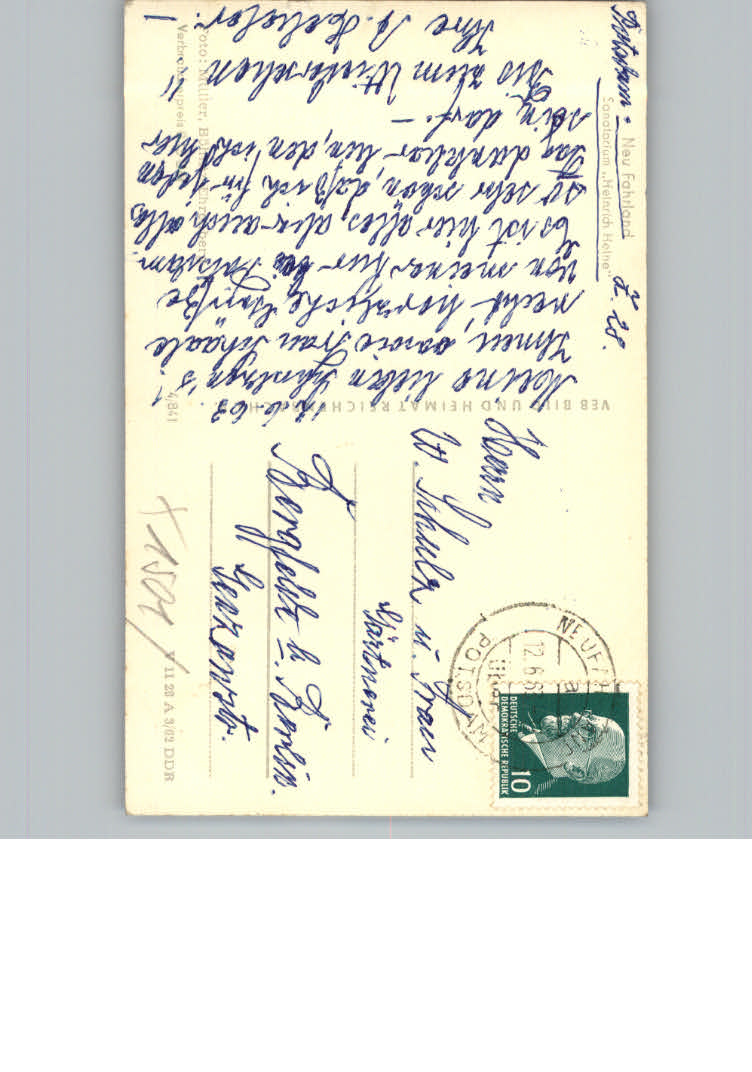 Potsdam - Neu Fahrland
Sanatorium „Heinrich Heine"
Z. 28.
12.6.63.
Meine lieben
Ihnen, sowie Frau Schaale
recht herzliche Grüße
von meiner Kur bei Potsdam.
Es ist hier alles, aber auch alles
so sehr schön, daß ich für jeden
Tag dankbar bin, den ich hier
sein darf. –
Bis zum Wiedersehen
Ihre
Foto: Müller,
Verbraucherpreis
VEB BILD UND HEIMAT REICHENBACH
4/841
Herrn
W. Schulz u. Frau
Gärtnerei
Borgfelde b. Berlin.
V 11 28 A 3/62 DDR
1504
NEUFAHRLAND
POTSDAM
12.6.63
DEUTSCHE
DEMOKRATISCHE REPUBLIK
10